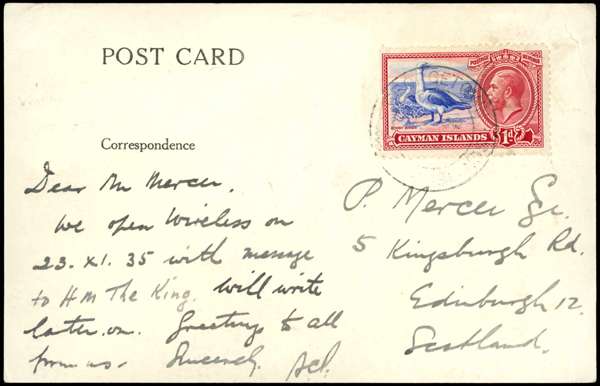 POST CARD
CAYMAN ISLANDS 1d
Correspondence
Dear Mr Mercer,
We open Wireless on
23.XI.35 with message
to HM The King. Will write
later on. Greetings to all
from us. Sincerely.
P. Mercer
5 Kingsburgh Rd.
Edinburgh 12.
Scotland.